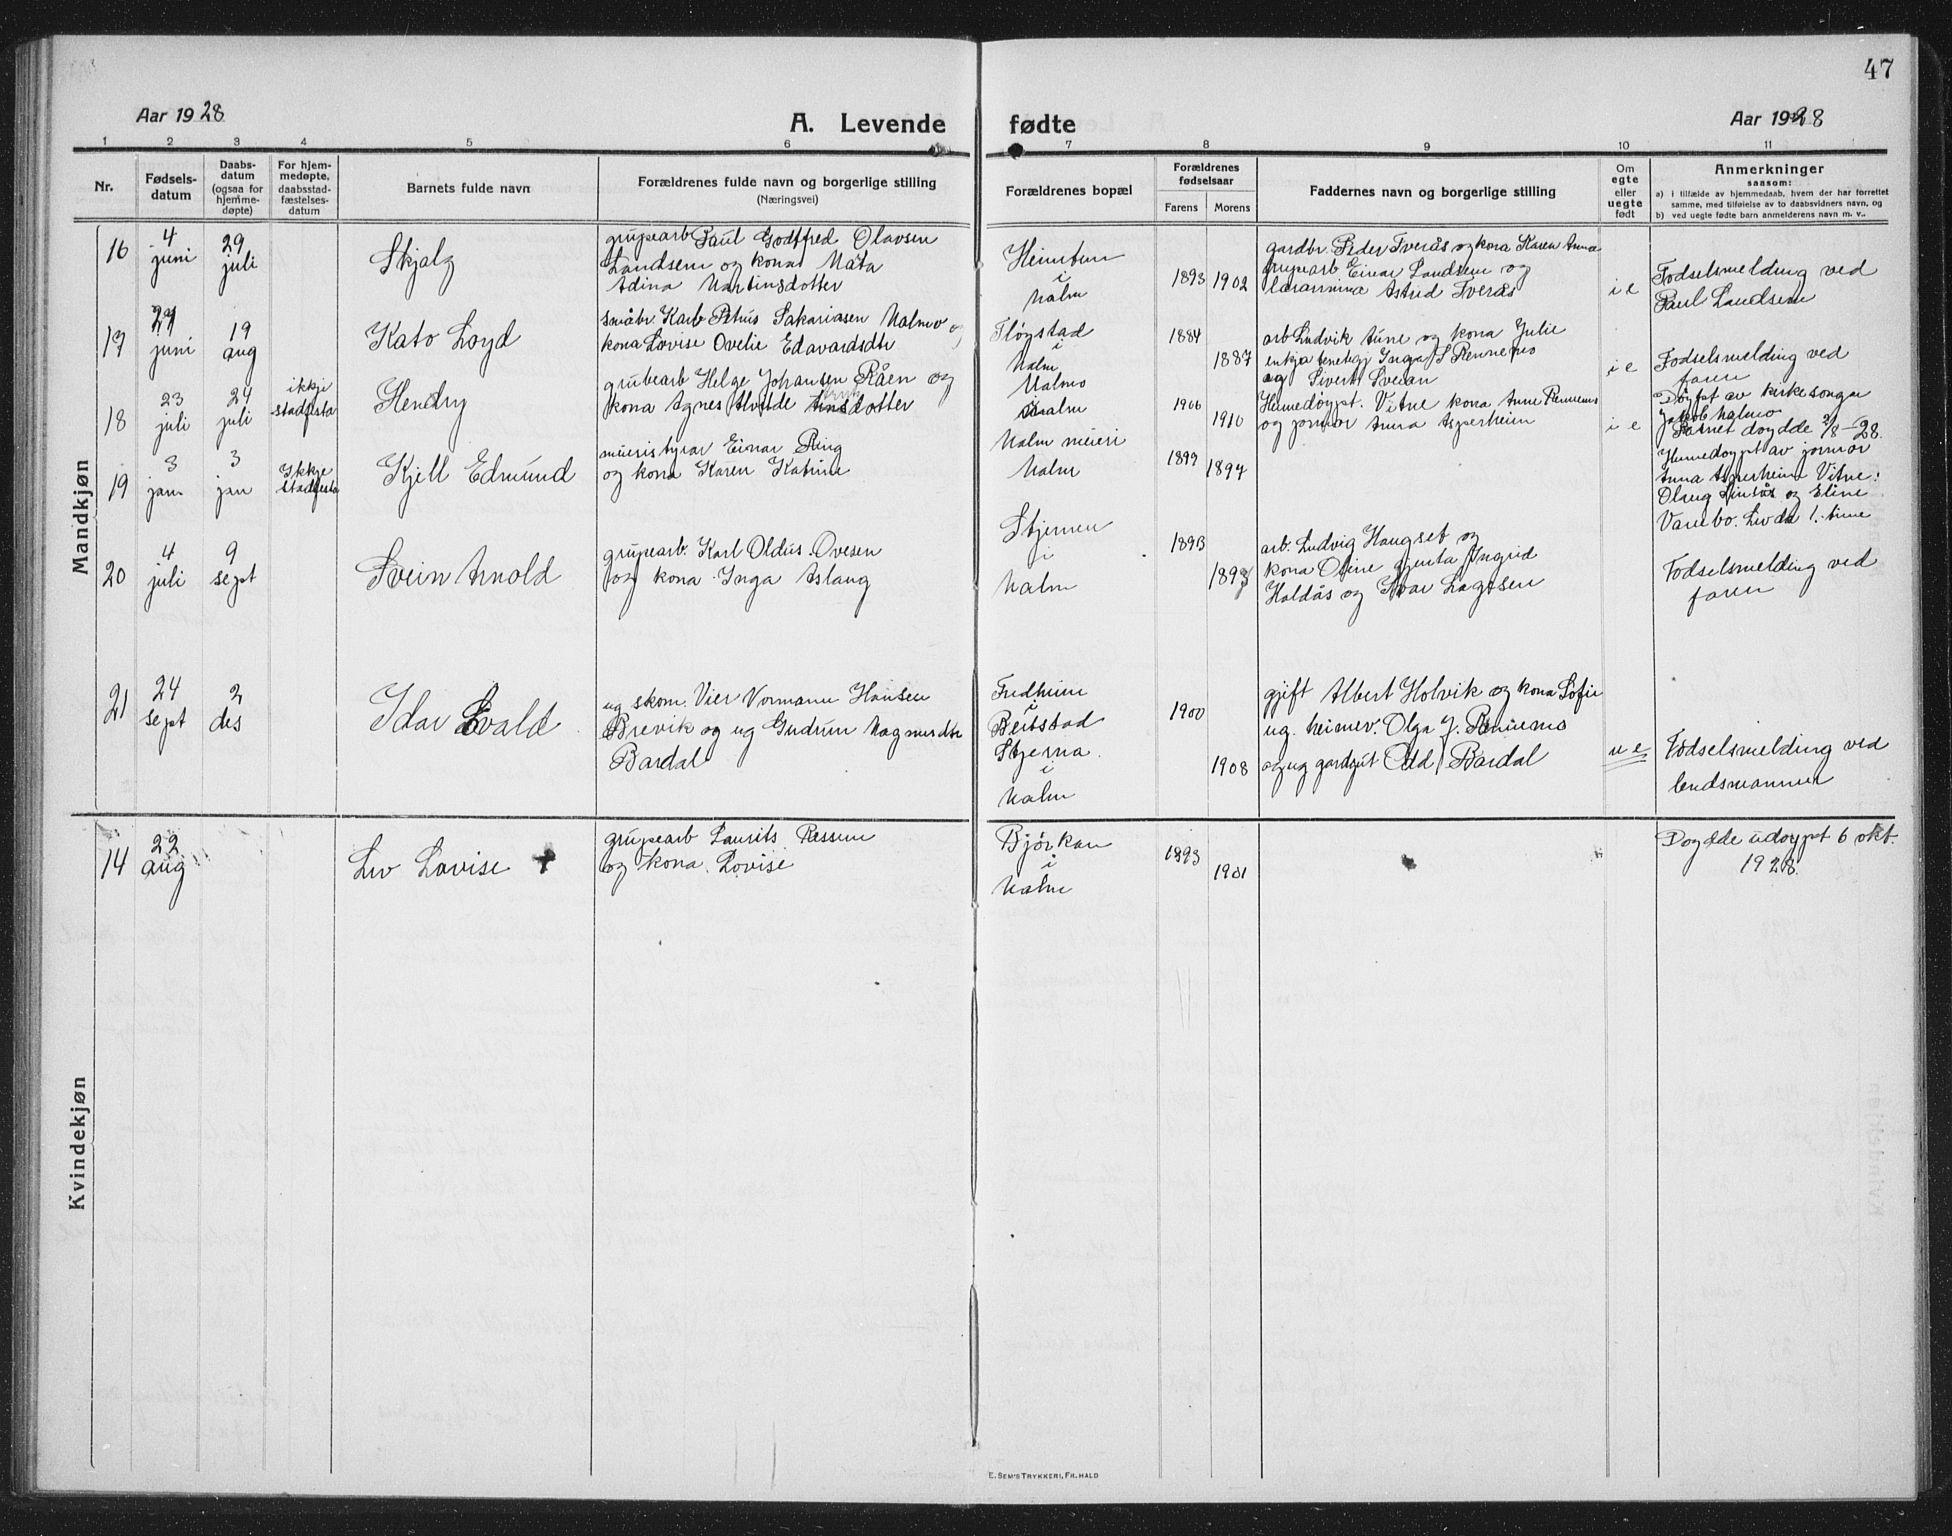 47
Aar 1928
A. Levende fødte
Aar 1928
1 2 3 4 5 6 7 8 9 10 11
Nr.
Fødsels-
datum
Daabs-
datum
(ogsaa for
hjemme-
døpte)
For hjem-
medøpte,
daabsstad-
fæstelses-
datum
Barnets fulde navn
Forældrenes fulde navn og borgerlige stilling
(Næringsvei)
Forældrenes bopæl
Forældrenes
fødselsaar
Farens Morens
Faddernes navn og borgerlige stilling
Om
egte
eller
uegte
født
Anmerkninger
saasom:
a) i tilfælde av hjemmedaab, hvem der har forrettet
samme, med tilføielse av to daabsvidners navn, og
b) ved uegte fødte barn anmelderens navn m. v..
Mandkjøn
16
4
juni
29
juli
Skjalg
grupearb Paul Godtfred Olavsen
Landsem og kona Mata
Adina Martinsdotter
Heimtun
i
Malm
1893 1902
gardbr. Peder Tverås og kona Karen Anna
grupearb Einar Landsem og
lærarinna Astrid Tverås
i e
Fodselsmelding ved
Paul Landsem
17
juni
19
aug
Kato Loyd
småbr. Karl Petrus Sakariasen Malmo og
kona Lovise Ovelie Edavardsdtr
Fløgstad
i
Malm
1884
1887
arb Ludvik Aune og kona Julie
enkja Inga S Rennemo
og Sivert Sveian
i e
Fodselsmelding ved
faren
18
23
juli
24
juli
ikkje
stadfesta
Hendry
grubearb Helge Johansen Råen og
kona Agnes Alvilde
Malmo
Malm
1906
1910
Heimedøypt. Vitne kona Anne Rennemo
og jormor Anna Asperheim
i e
Døypt av kirkesongar
Jakob Malmo
Barnet doydde 2/8 - 28.
19
3
jan
3
jan
Ikkje
stadfesta
Kjell Edmund
meieristyrar Einar Ring
og kona Karen Katrine
Malm meieri
Malm
1899
1897
Heimedoypt av jormor
Anna Asperheim Vitne:
Olaug og Eline
Vanebo. Levde 1. time
20
4
juli
9
sept
Svein Arnold
grupearb. Karl Oldus Ovesen
og kona Inga Aslaug
Stjernen
i
Malm
1893
1893
arb. Ludvig Haugset og
kona Otine gjenta Ingrid
Haldås og Ivar
Fodselsmelding ved
faren
21
24
sept
2
des
Idar Evald
ug skom. Vier Normann Hansen
Brevik og ug Gudrun Magnusdtr
Bardal
Fredheim
i
Beitstad
Stjerna.
i
Malm
1900
1908
gjift Albert Holvik og kona Sofie
ug. heimev. Olga J. Rennemo
og ug gardgut Odd Bardal
u e
Fodselsmelding ved
lendsmannen
Kvindekjøn
14
22
aug
Liv Lovise †
grupearb Laurits Ressem
og kona Lovise
Bjørkan
i
Malm
1893
1901
Doydde udoypt 6 okt.
1928.
E. Sem's Trykkeri, Fr.hald